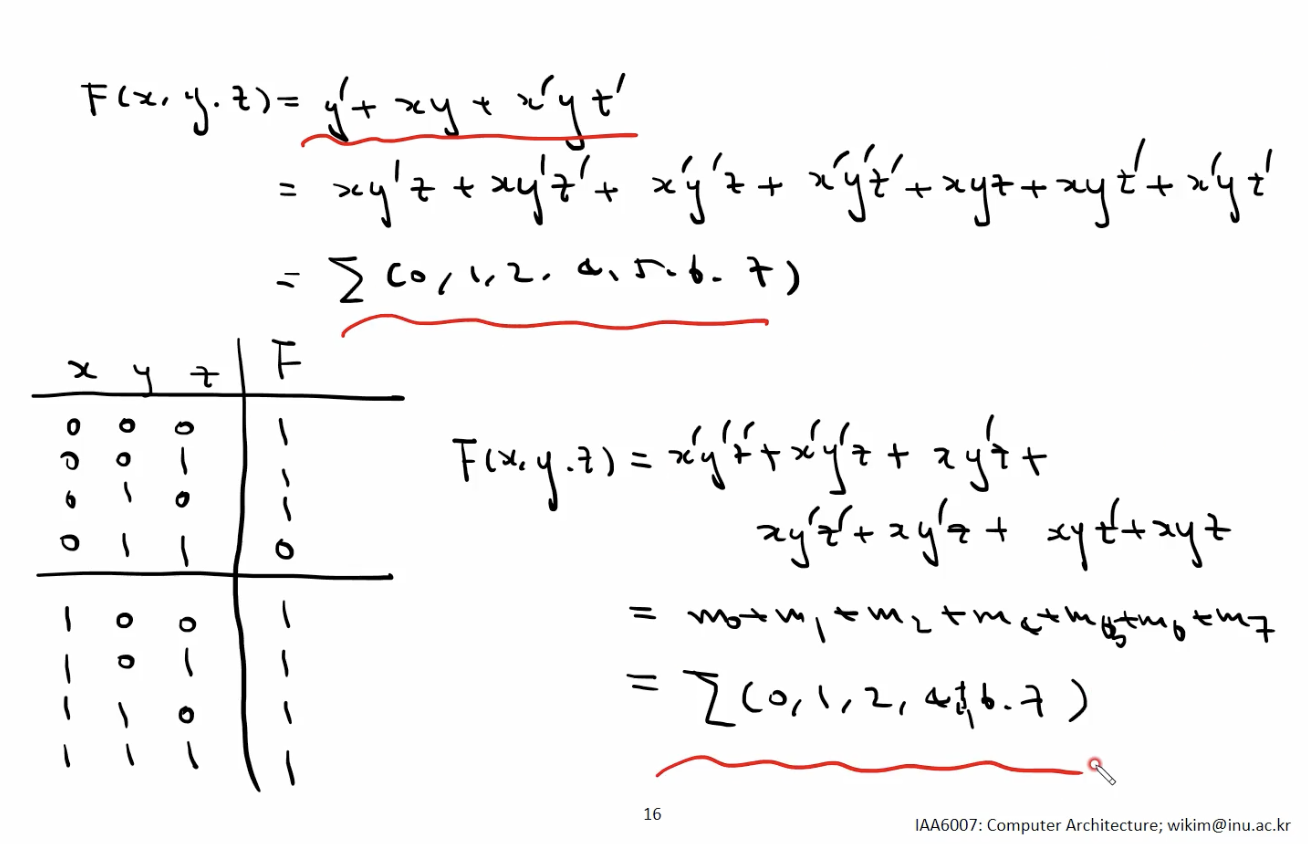 F(x, y, z) = y' + xy + x'yz'
= xy'z + xy'z' + x'y'z + x'y'z' + xyz + xyz' + x'yz'
= ∑(0, 1, 2, 4, 5, 6, 7)
x y z F
0 0 0 1
0 0 1 1
0 1 0 1
0 1 1 0
1 0 0 1
1 0 1 1
1 1 0 1
1 1 1 1
F(x, y, z) = x'y'z' + x'y'z + xy'z +
xy'z' + xy'z + xyz' + xyz
= m0 + m1 + m2 + m4 + m5 + m6 + m7
= ∑(0, 1, 2, 4, 5, 6, 7)
16
IAA6007: Computer Architecture; wikim@inu.ac.kr